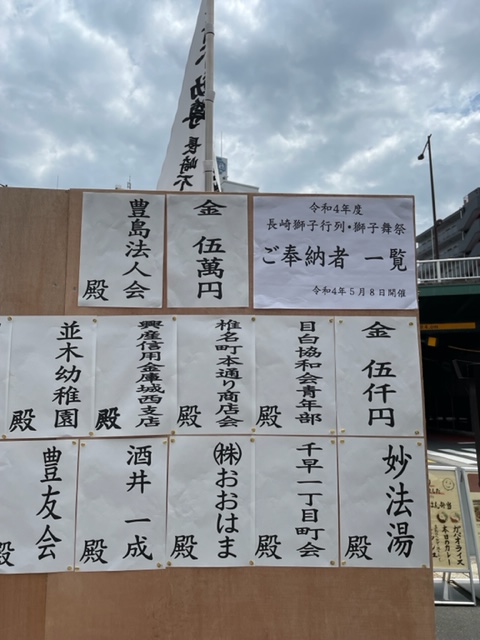 令和4年度
長崎獅子行列・獅子舞祭
ご奉納者 一覧
令和4年5月8日開催
金 伍萬円
豊島法人会 殿
金 伍仟円
目白協和会青年部 殿
椎名町本通り商店会 殿
興産信用金庫城西支店 殿
並木幼稚園 殿
妙法湯 殿
千早一丁目町会 殿
㈱おおはま 殿
酒井 一成 殿
豊友会 殿
長崎
ガパオライス
本日のカレー